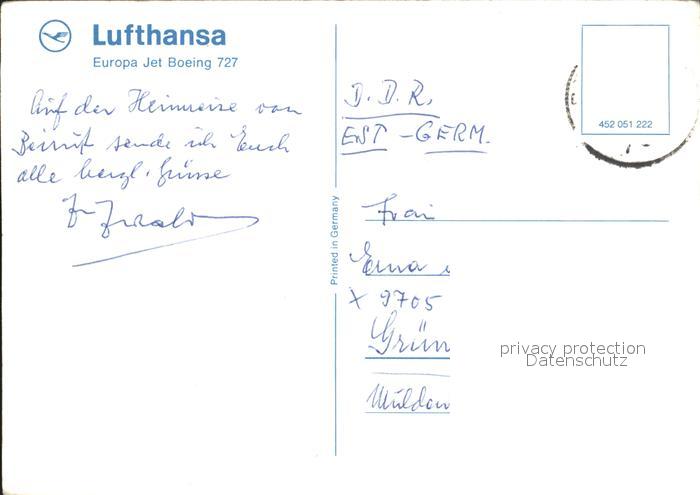 Lufthansa
Europa Jet Boeing 727
Auf der Heimreise von
Beirut sende ich Euch
alle herzl. Grüsse
D.D.R.
EST-GERM.
452 051 222
Printed in Germany
Frau
Erna
X 9705
Grün
Muldan
privacy protection
Datenschutz